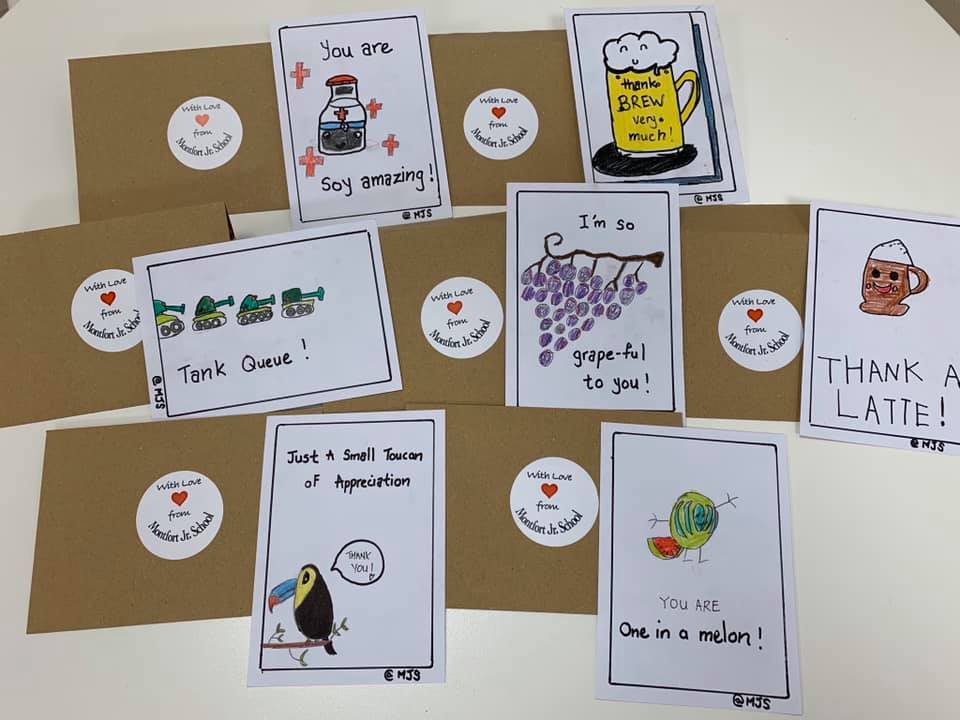 With Love
from
Montfort Jr. School
You are
Soy amazing!
@ MJS
With Love
from
Montfort Jr. School
thank
BREW
very
much!
@ MJS
With Love
from
Montfort Jr. School
Tank Queue!
@ MJS
With Love
from
Montfort Jr. School
I'm so
grape-ful
to you!
With Love
from
Montfort Jr. School
THANK A
LATTE!
@ MJS
With Love
from
Montfort Jr. School
Just A Small Toucan
oF Appreciation
THANK
YOU!
@ MJS
With Love
from
Montfort Jr. School
YOU ARE
One in a melon!
@ MJS